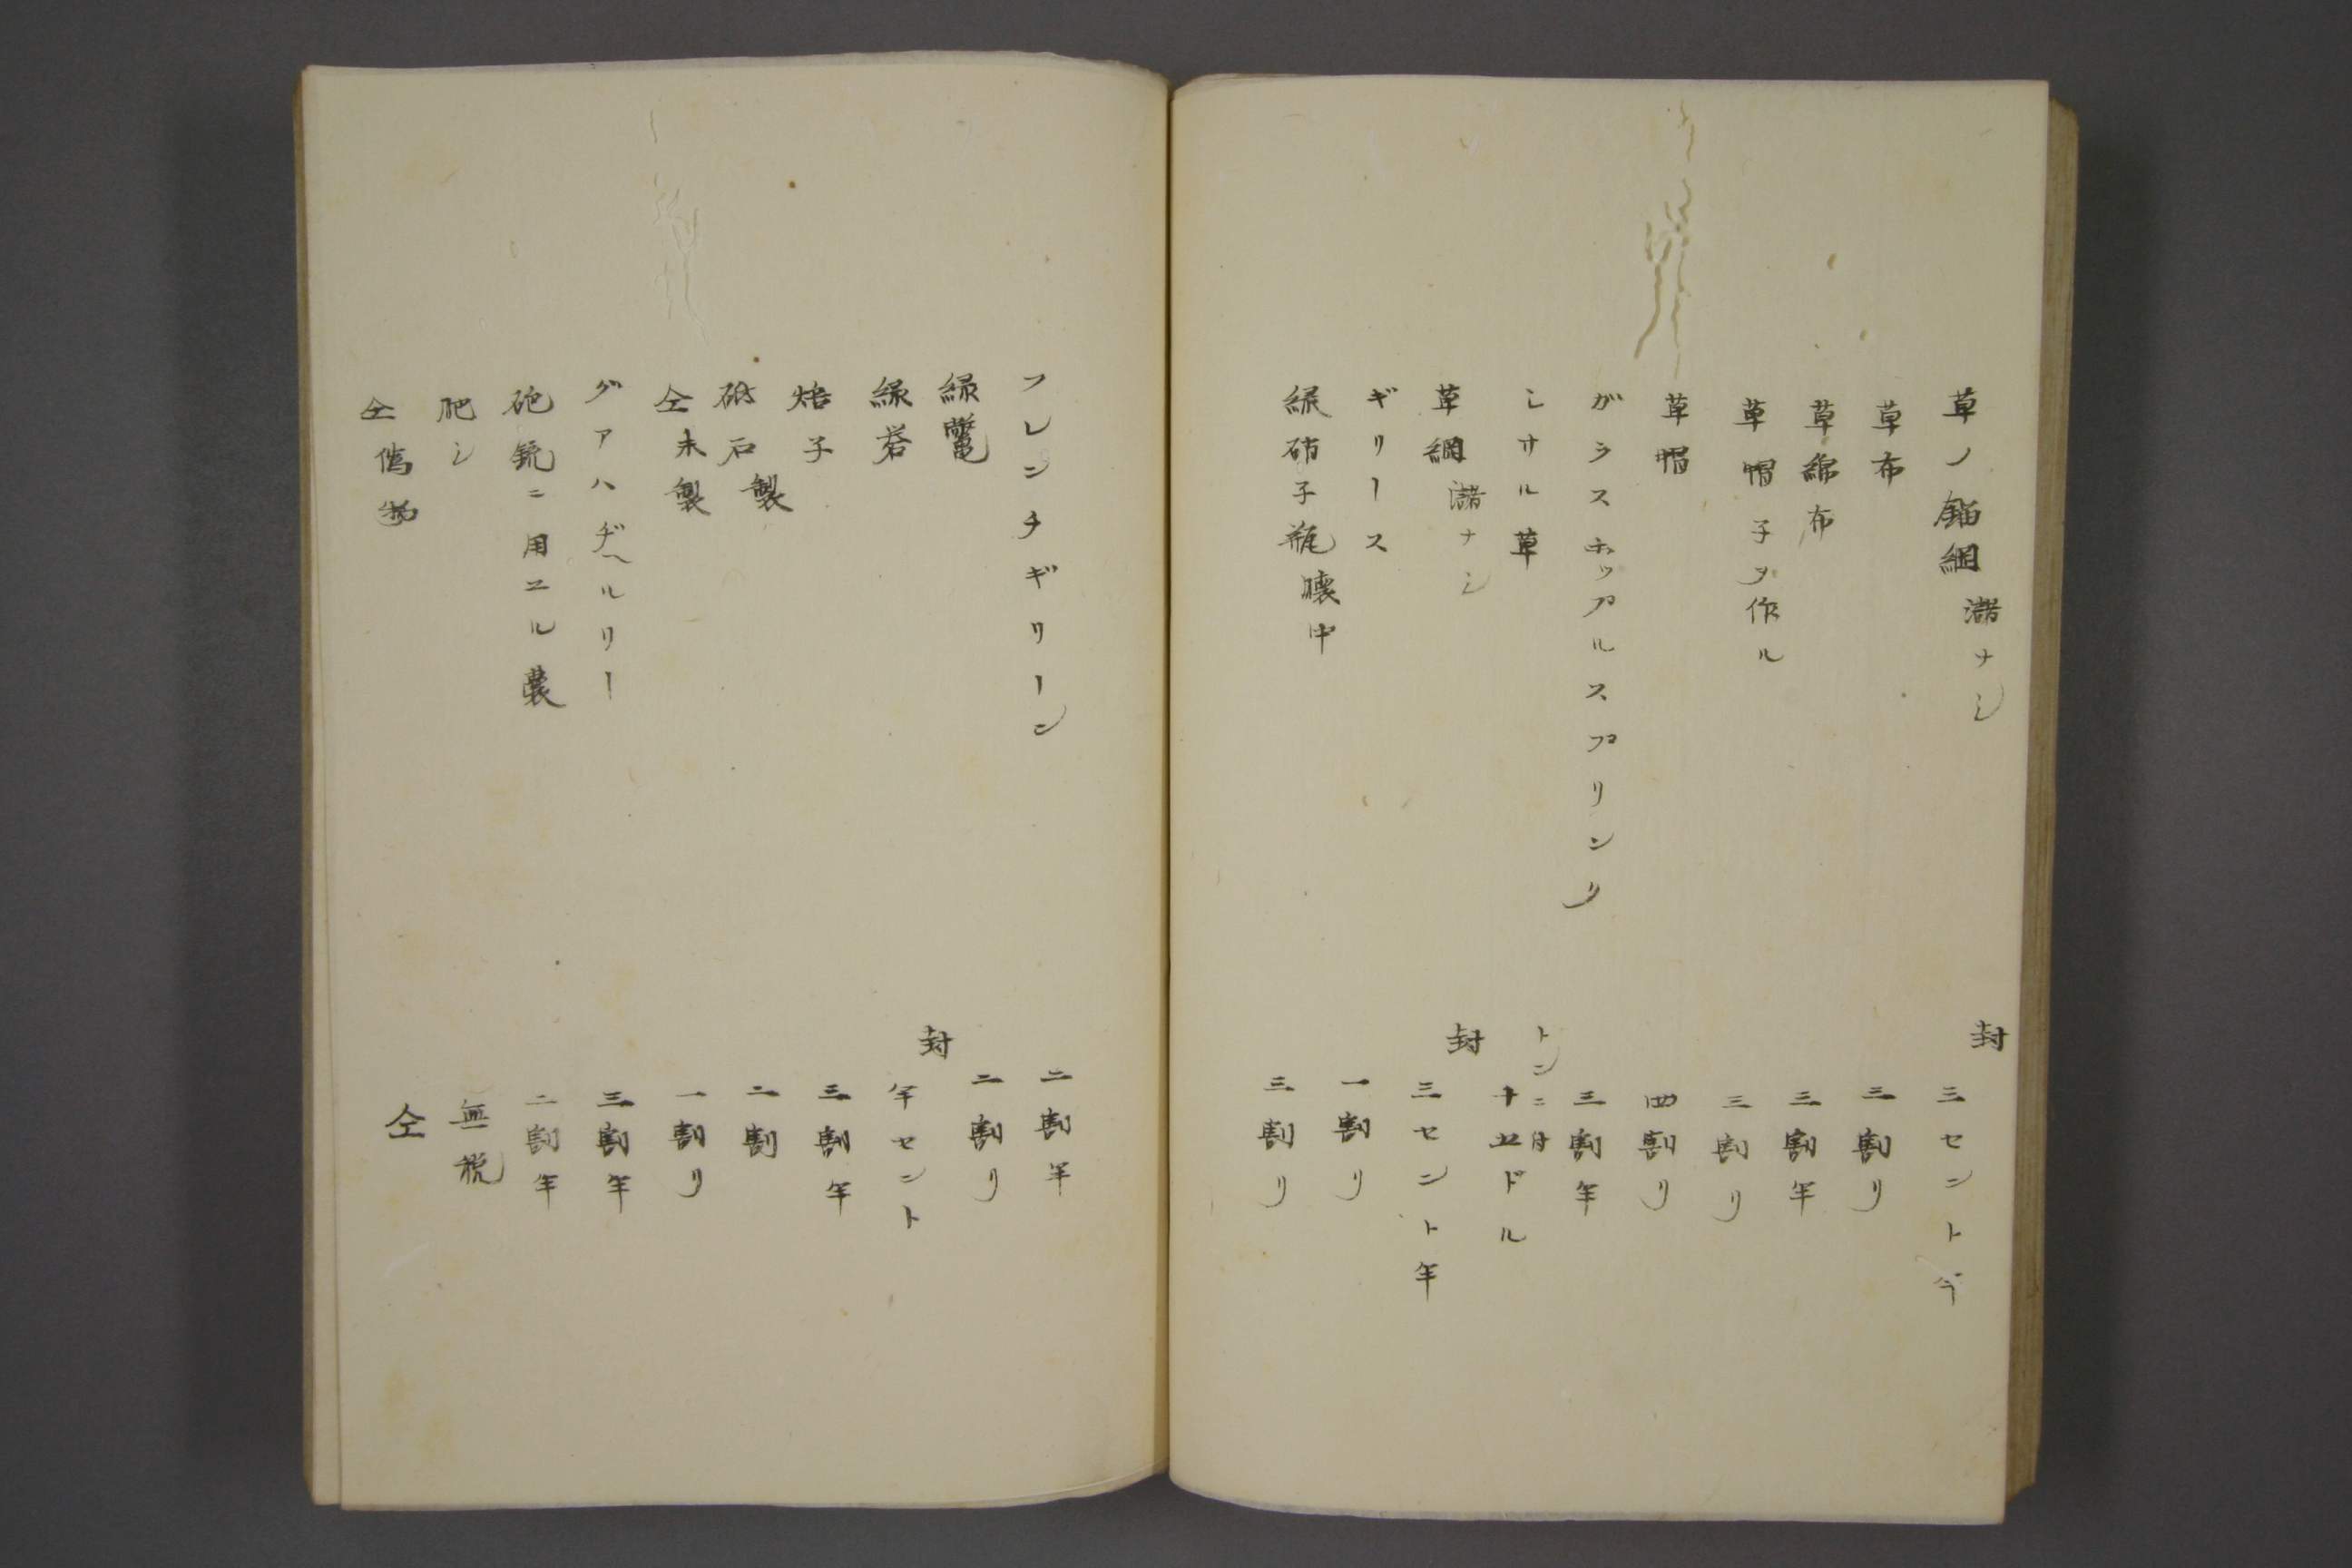 草ノ錨綱 瀦ナシ 封 三セント半
草布 三割リ
草綿布 三割半
草帽子ヲ作ル 三割リ
草帽 四割リ
ガラスホッブルスプリング 三割半
シサル草 トンニ付 十五ドル
草綱 瀦ナシ 封 三セント半
ギリース 一割リ
緑硝子瓶 中 三割リ
フレンチギリーン 二割半
緑鼈 二割リ
緑礬 封 半セント
焙子 三割半
砥石製 二割
仝未製 一割リ
グアハヂヘルリー 三割半
砲銃ニ用ユル嚢 二割半
肥シ 無税
仝偽物 仝